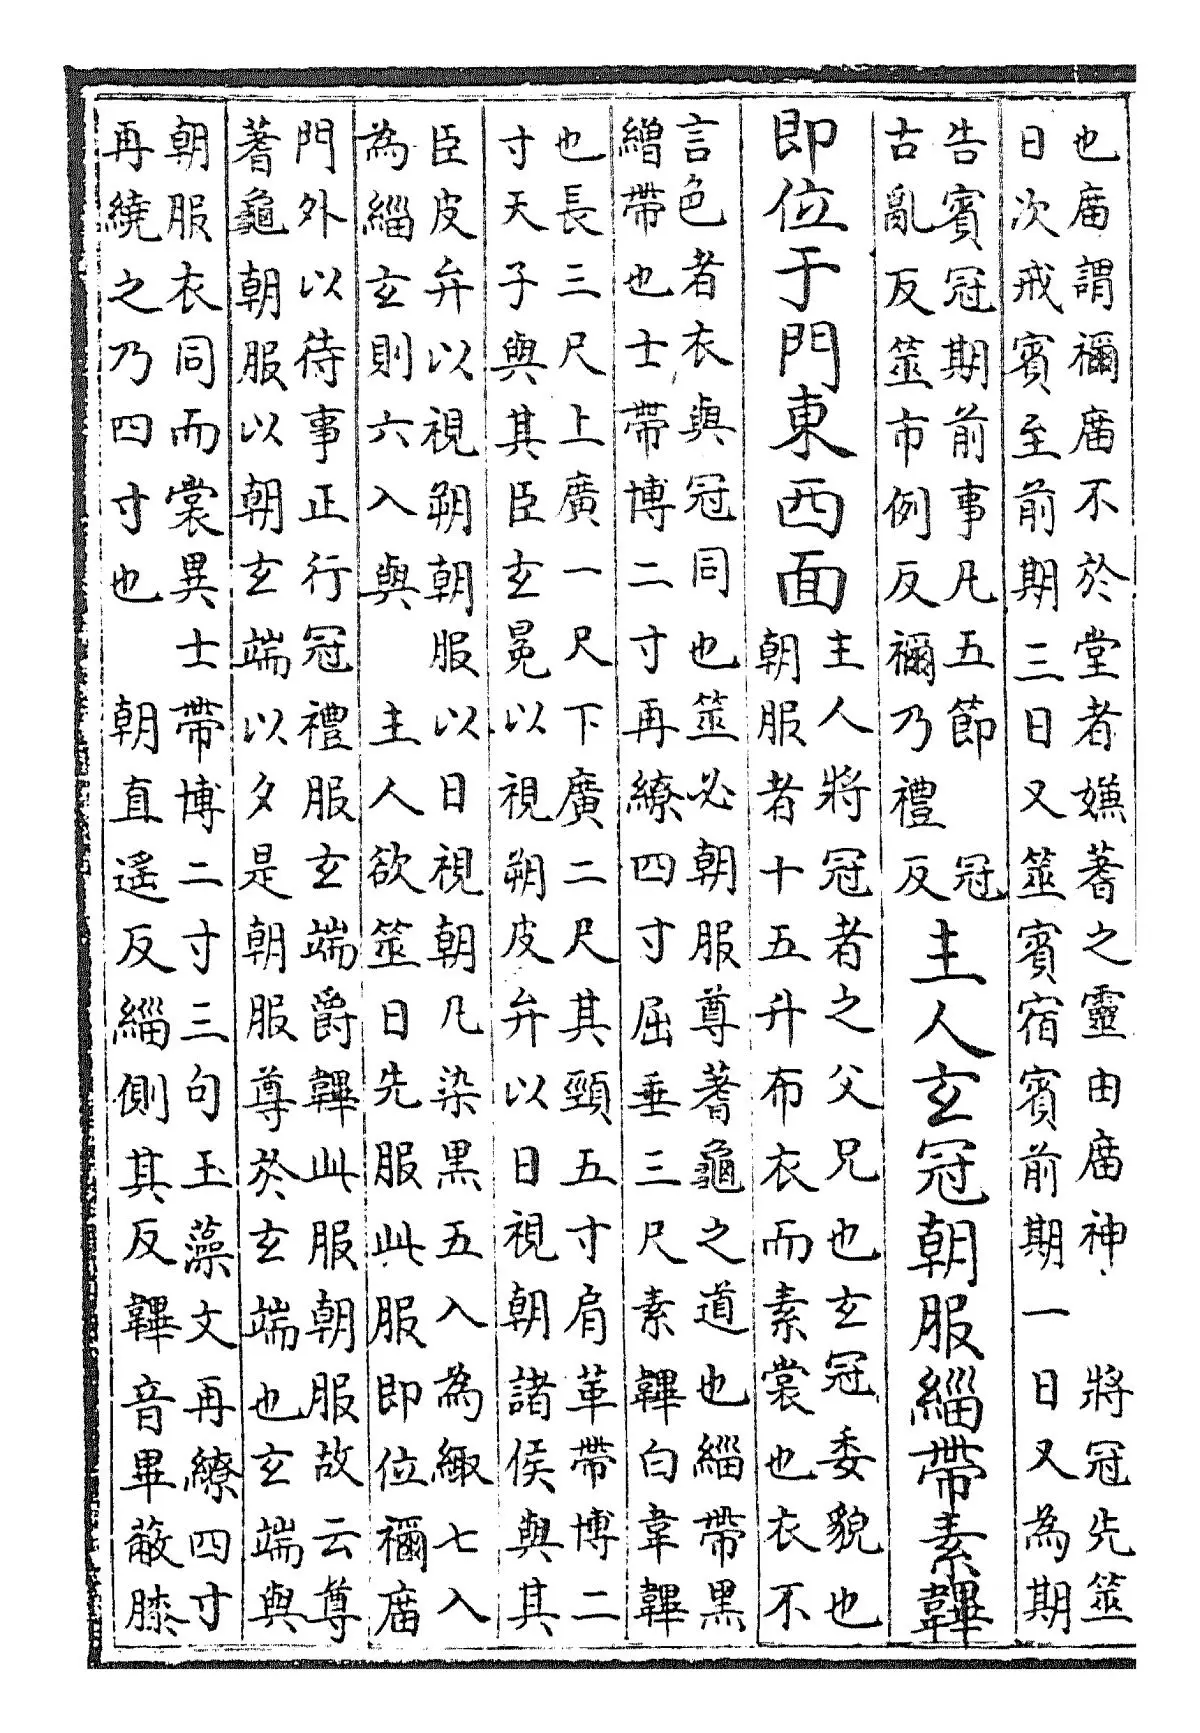 也庿謂禰庿不於堂者嫌蓍之靈由庿神　將冠先筮
日次戒賓至前期三日又筮賓宿賓前期一日又為期
告賓冠期前事凡五節　冠
古亂反筮市例反禰乃禮反
主人玄冠朝服緇帶素韠
即位于門東西面
主人將冠者之父兄也玄冠委貌也
朝服者十五升布衣而素裳也衣不
言色者衣與冠同也筮必朝服尊蓍龜之道也緇帶黑
繒帶也士帶博二寸再繚四寸屈垂三尺素韠白韋韠
也長三尺上廣一尺下廣二尺其頸五寸肩革帶博二
寸天子與其臣玄冕以視朔皮弁以日視朝諸侯與其
臣皮弁以視朔朝服以日視朝凡染黑五入為緅七入
為緇玄則六入與　主人欲筮日先服此服即位禰庿
門外以待事正行冠禮服玄端爵韠此服朝服故云尊
蓍龜朝服以朝玄端以夕是朝服尊於玄端也玄端與
朝服衣同而裳異士帶博二寸三句玉藻文再繚四寸
再繞之乃四寸也　朝直遥反緇側其反韠音畢蔽膝